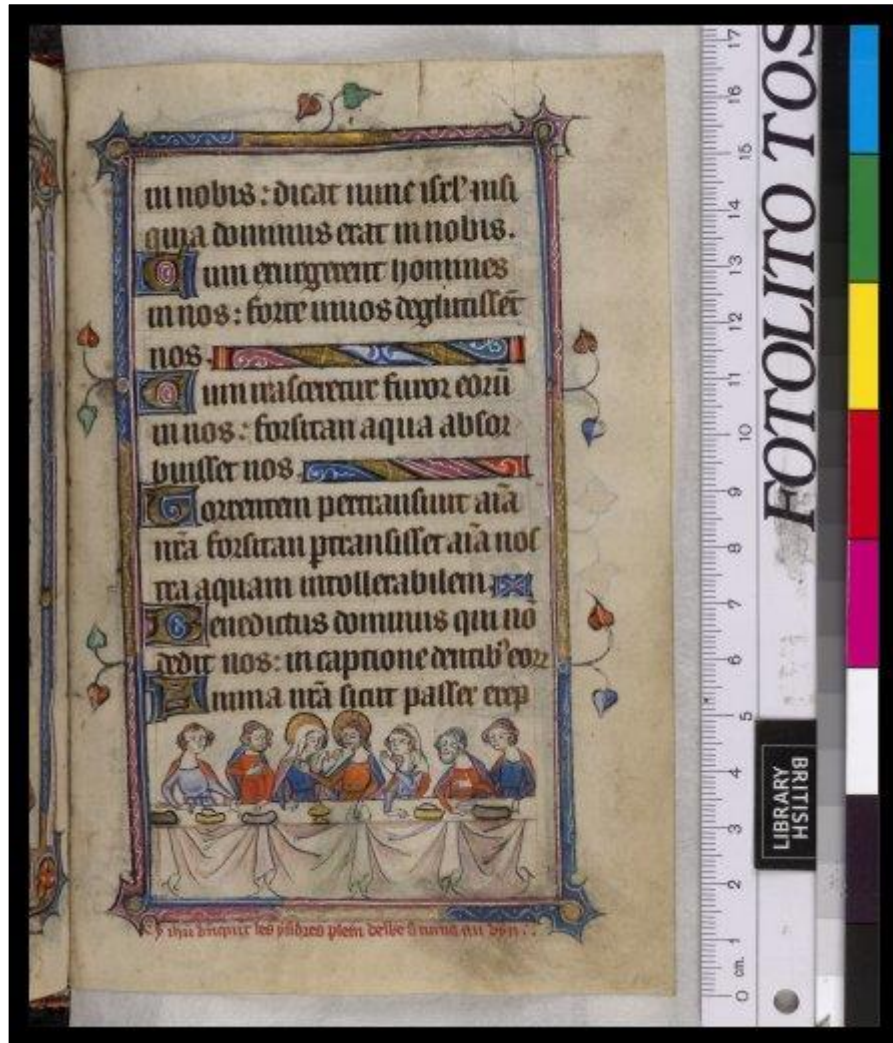 in nobis : dicat nunc isrl' nisi
quia dominus erat in nobis.
Cum exurgerent homines
in nos : forte viuos deglutissẽt
nos.
Cum irasceretur furor eorũ
in nos : forsitan aqua absor
buisset nos.
Torrentem pertransiuit aĩa
nrã forsitan ptransisset aĩa nos
tra aquam intollerabilem.
Benedictus dominus qui nõ
dedit nos : in captione dentib' eorꝝ
Anima nrã sicut passer erep
les ydres plein
FOTOLITO TOS
BRITISH
LIBRARY
0 cm. 1 2 3 4 5 6 7 8 9 10 11 12 13 14 15 16 17